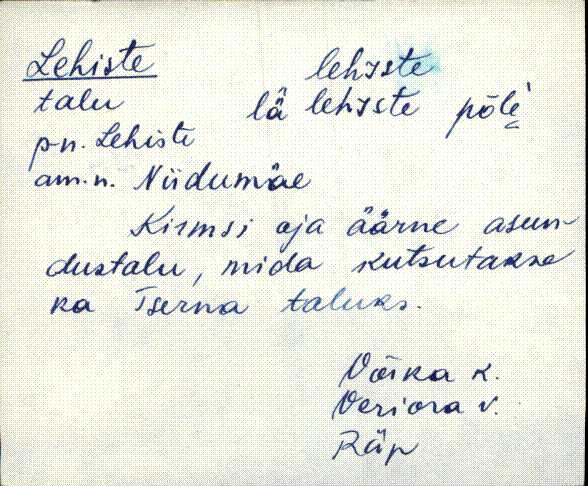 Lehiste lehɪste
talu lä lehɪste põlè
p-n. Lehiste
am.n. Niidumäe
Kirmsi oja äärne asun-
dustalu, mida kutsutakse
ka Tserna taluks.
Võika k.
Veriora v.
Räp